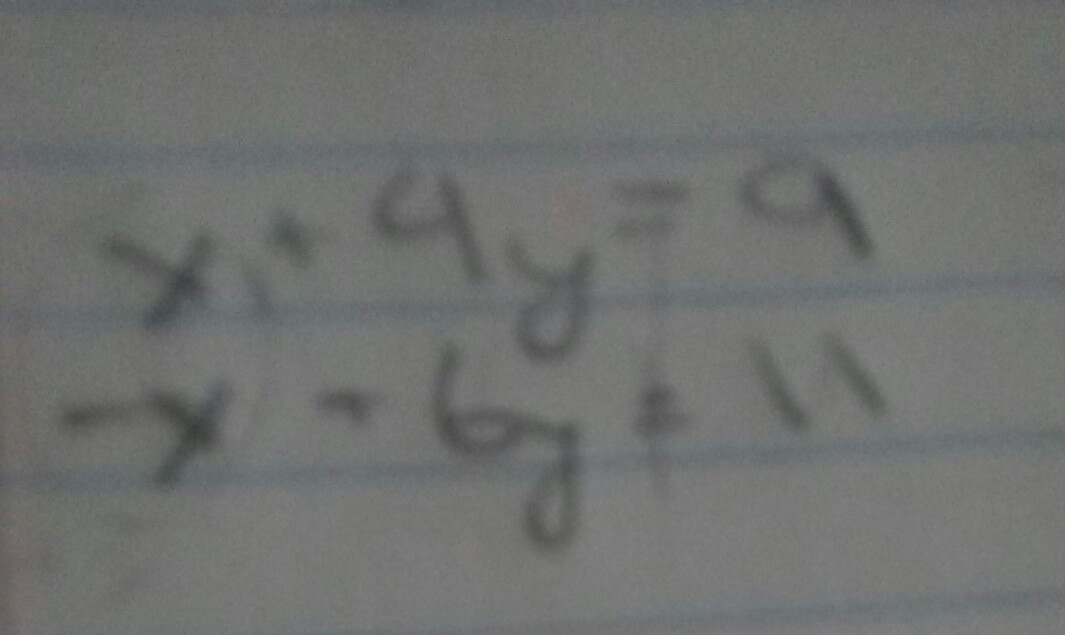 x + 9y = 9
-x - 6y = 11